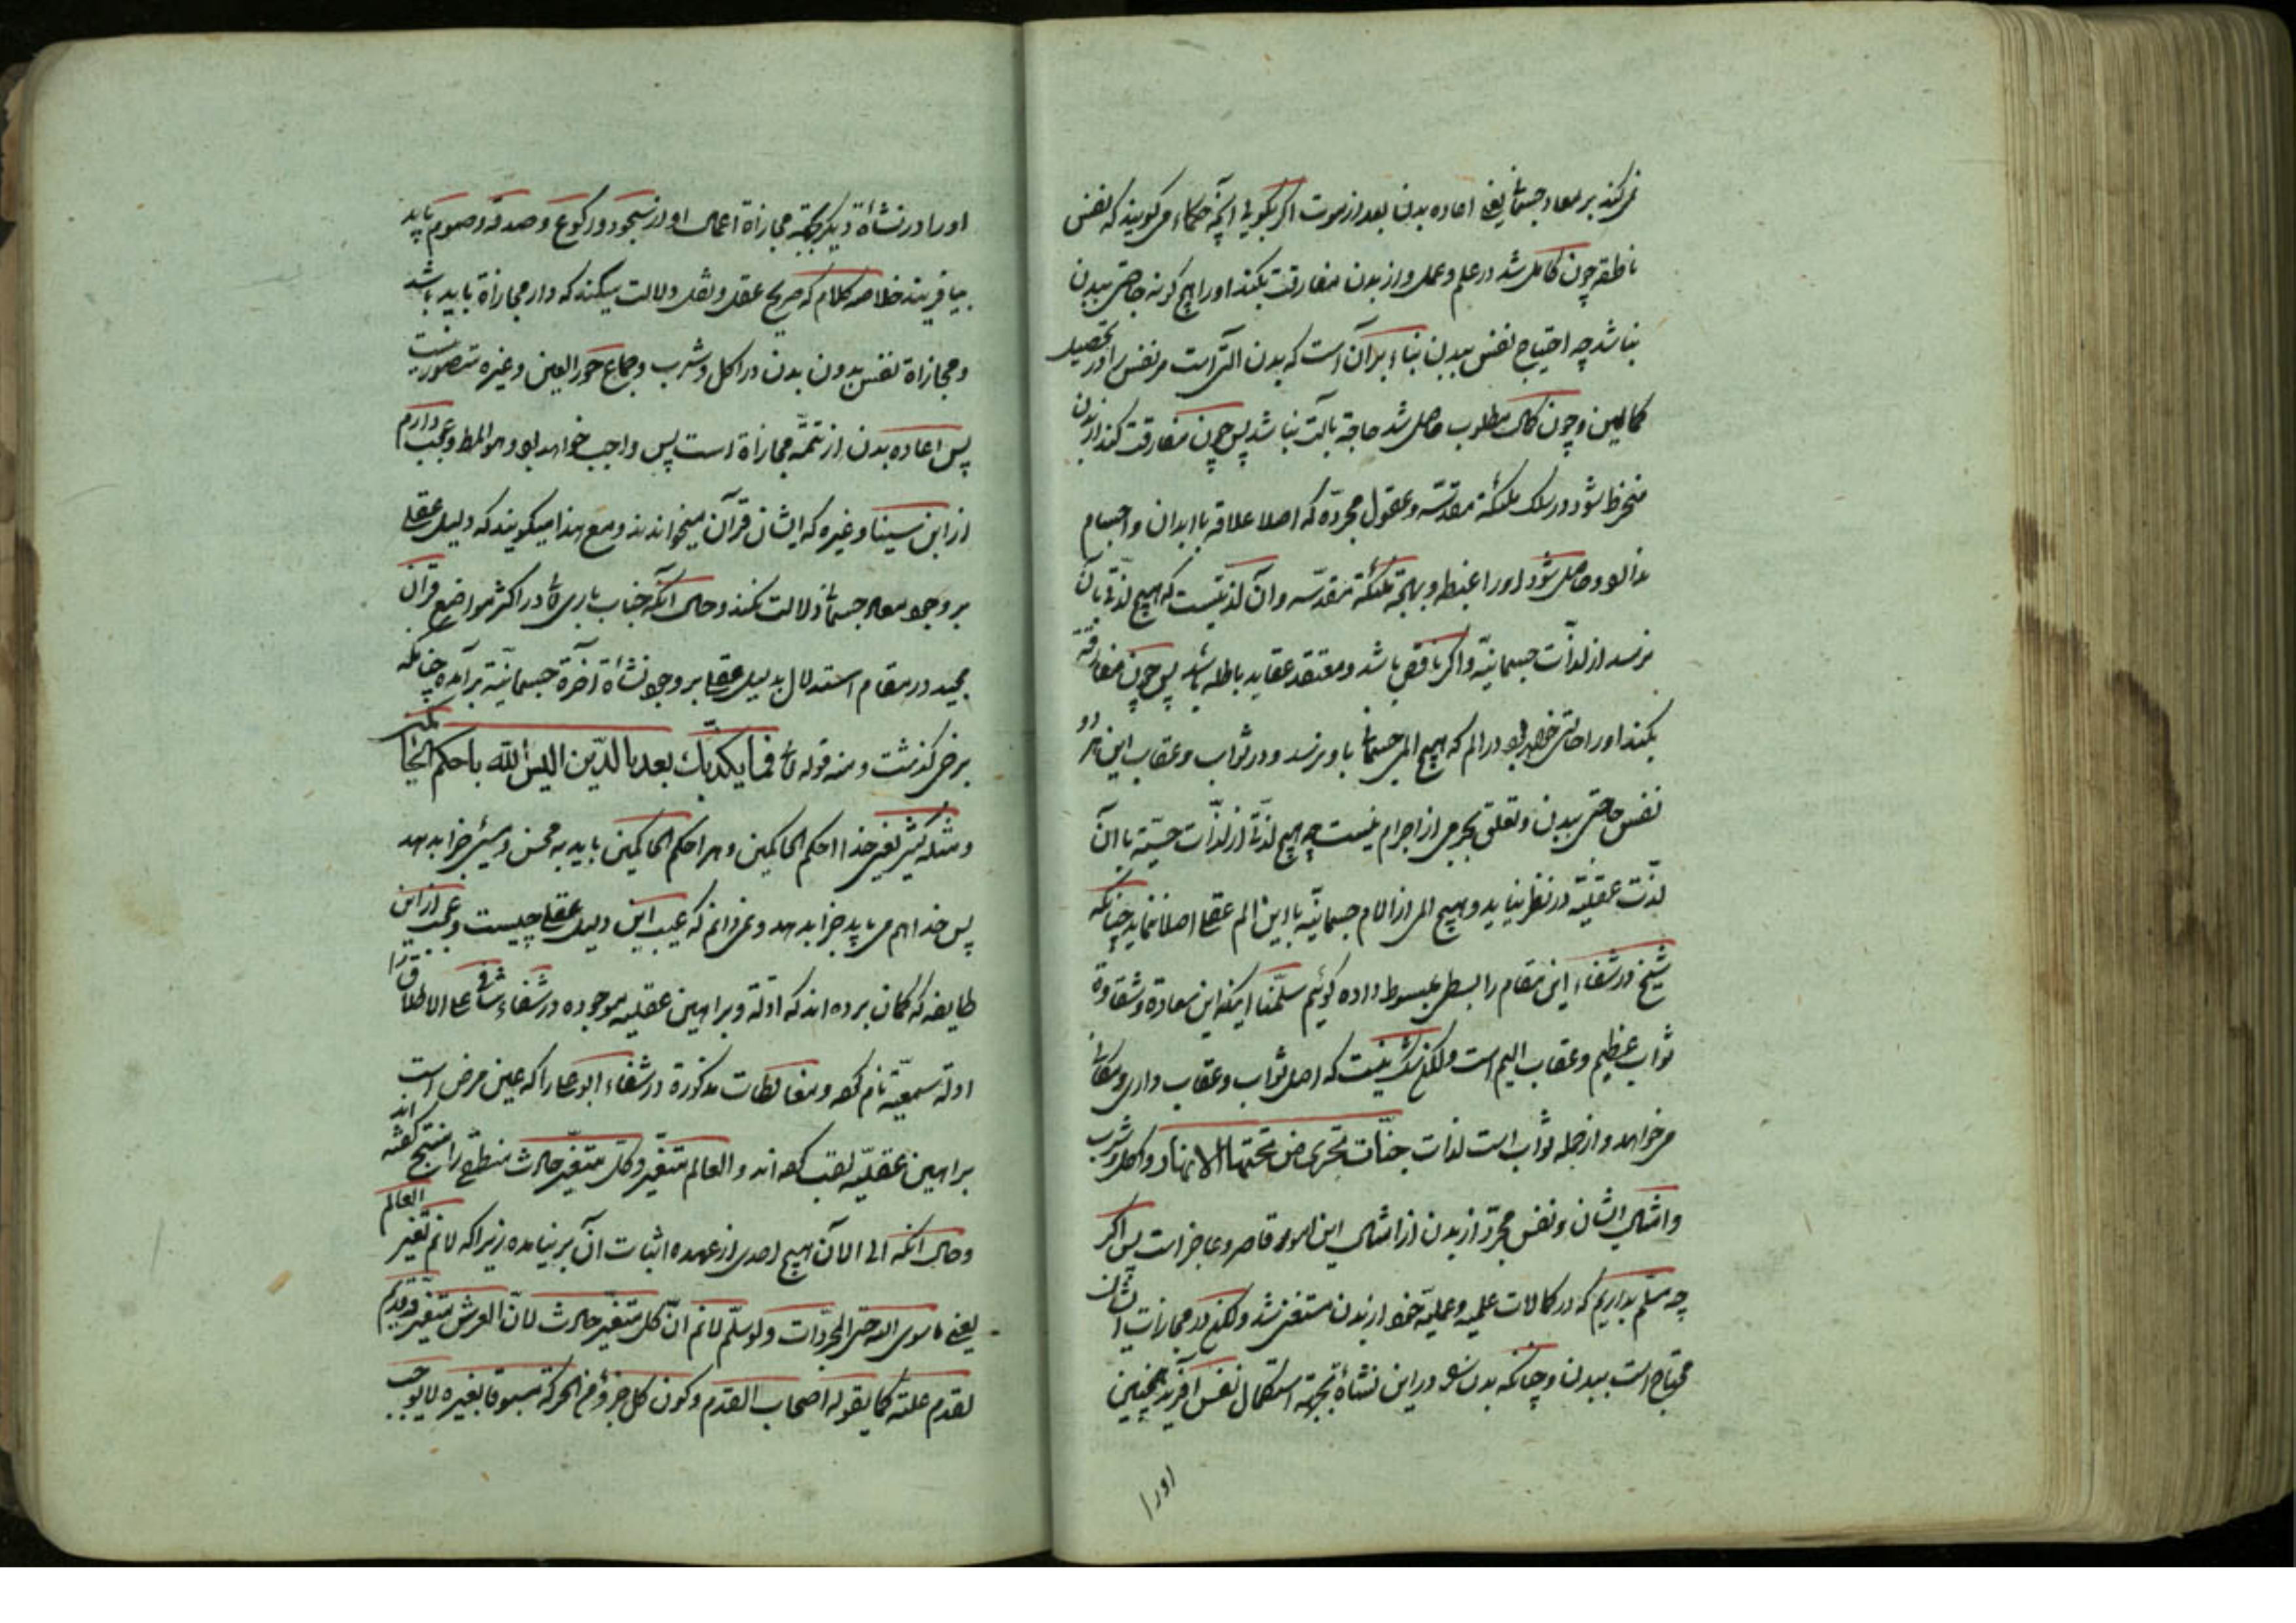 نمیکند بر معاد جسمانی یعنی اعاده بدن بعد از موت اگر بگویی آنچه حکماء میگویند که نفس
ناطقه چون کامل شد در علم و عمل و از بدن مفارقت بکند او را هیچ گونه حاجتی ببدن
نباشد چه احتیاج نفس ببدن بناء بر آن است که بدن آلتی است مر نفس را در تحصیل
کمالین و چون کمال مطلوب حاصل شد حاجة بآلت نباشد پس چون مفارقت کند از بدن
منخرط شود در سلک ملئکه مقدسه و عقول مجرده که اصلا علاقه با ابدان و اجسام
ندارد و حاصل شود او را غبطه و بهجة ملئکة مقدسه و آن لذتیست که هیچ لذتی بآن
نرسد از لذات جسمانیة و اگر ناقص باشد و معتقد عقاید باطله باشد پس چون مفارقة
بکند او را حالتی خواهد بود در الم که هیچ المی جسمانی باو نرسد و در ثواب و عقاب این هر دو
نفس حاجتی ببدن و تعلق بجرمی از اجرام نیست چه هیچ لذتی از لذات حسیة با آن
لذت عقلیة در نظر نیاید و هیچ المی از آلام جسمانیة با این الم عقلی اصلا ننماید چنانکه
شیخ در شفاء این مقام را بسطی مبسوط داده گوئیم سلمنا اینکه این سعادة و شقاوة
ثواب عظیم و عقاب الیم است ولکن شک نیست که اصل ثواب و عقاب داری و مکانی
میخواهد و از جمله ثواب است لذات جنات تجری من تحتها الانهار و اکل و شرب
و امثال ایشان و نفس مجرد از بدن از امثال این امور قاصر و عاجز است پس اگر
چه مسلم بداریم که در کمالات علمیه و عملیه خود از بدن مستغنی شد ولکن در مجازات ایشان
محتاج است ببدن و چنانکه بدن او در این نشاة بجهة استکمال نفس آفریدند همچنین
اورا
او را در نشاة دیگر بجهة مجازاة اعمال او از سجود و رکوع و صدقه و صوم باید
بیافریند خلاصه کلام که صریح عقل و نقل دلالت میکند که دار مجازاة باید باشد
و مجازاة نفس بدون بدن در اکل و شرب و جماع حور العین و غیره متصور نیست
پس اعاده بدن از تتمه مجازاة است پس واجب خواهد بود و هو المط و عجب دارم
از ابن سینا و غیره که ایشان قرآن میخوانند و مع هذا میگویند که دلیل عقلی
بر وجود معاد جسمانی دلالت نکند و حال آنکه جناب باری تع در اکثر مواضع قرآن
مجید در مقام استدلال بدلیل عقلی بر وجود نشاة آخرة جسمانیة برآمده چنانکه
برخی گذشت و منه قوله تع فما یکذبک بعد بالدین الیس الله باحکم الحاکمین
و مثله کثیر یعنی خدا احکم الحاکمین و هر احکم الحاکمین باید به محسن و مسیئ جزا بدهد
پس خدا هم میباید جزا بدهد و نمیدانم که عیب این دلیل عقلی چیست و عجب از این
طایفه که گمان برده اند که ادلة و براهین عقلیه موجوده در شفاء شافی علی الاطلاق را
ادلة سمعیة نام کرده و مغالطات مذکورة در شفاء ابو علی را که عین مرض است
براهین عقلیه لقب کرده اند و العالم متغیر و کل متغیر حادث منطقی را منتج گفته اند
و حال انکه الی الآن هیچ احدی از عهده اثبات آن بر نیامده زیرا که لا نم تغیر العالم
یعنی ما سوی الله حتی المجردات و لو سلم لا نم ان کل متغیر حادث لان العرش متغیر قدیم
لقدم علته کما یقوله اصحاب القدم و کون کل جزؤ من الحرکة مسبوقا بغیره لا یوجب